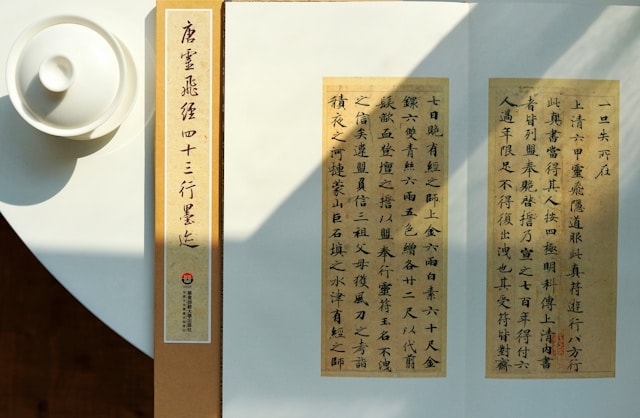 唐靈飛經四十三行墨迹
華東師範大學出版社
一旦失所在
上清六甲靈飛隱道服此真符遊行八方行
此真書當得其人按四極明科傳上清內書
者皆列盟奉貺啓誓乃宣之七百年得付六
人過年限足不得復出洩也其受符皆對齋
七日貺有經之師上金六兩白素六十尺金
鐶六雙青絲六兩五色繒各廿二尺以代翦
髮歃血登壇之誓以盟奉行靈符玉名不洩
之信矣違盟負信三祖父母獲風刀之考詣
積夜之河揵蒙山巨石填之水津有經之師